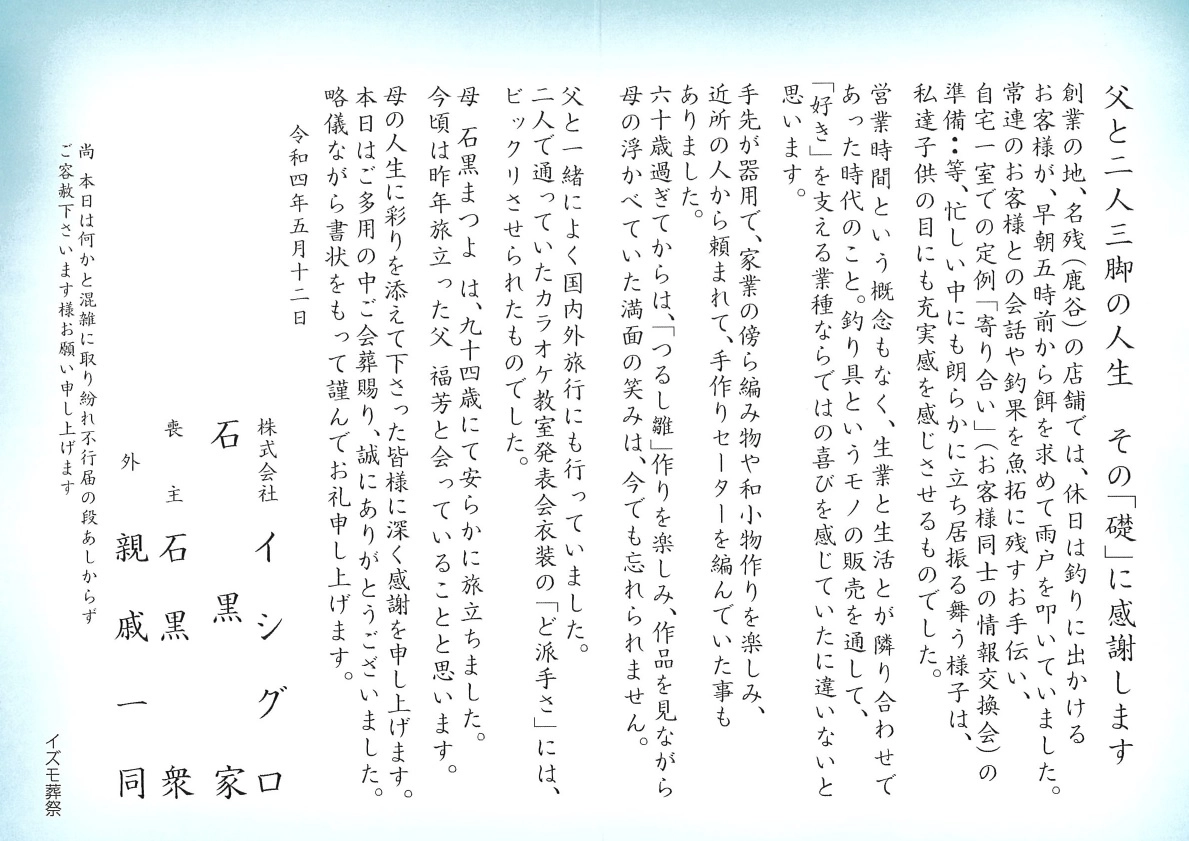 父と二人三脚の人生　その「礎」に感謝します
創業の地、名残（鹿谷）の店舗では、休日は釣りに出かける
お客様が、早朝五時前から餌を求めて雨戸を叩いていました。
常連のお客様との会話や釣果を魚拓に残すお手伝い、
自宅一室での定例「寄り合い」（お客様同士の情報交換会）の
準備・・等、忙しい中にも朗らかに立ち居振る舞う様子は、
私達子供の目にも充実感を感じさせるものでした。
営業時間という概念もなく、生業と生活とが隣り合わせで
あった時代のこと。釣り具というモノの販売を通して、
「好き」を支える業種ならではの喜びを感じていたに違いないと
思います。
手先が器用で、家業の傍ら編み物や和小物作りを楽しみ、
近所の人から頼まれて、手作りセーターを編んでいた事も
ありました。
六十歳過ぎてからは、「つるし雛」作りを楽しみ、作品を見ながら
母の浮かべていた満面の笑みは、今でも忘れられません。
父と一緒によく国内外旅行にも行っていました。
二人で通っていたカラオケ教室発表会衣装の「ど派手さ」には、
ビックリさせられたものでした。
母　石黒まつよ　は、九十四歳にて安らかに旅立ちました。
今頃は昨年旅立った父　福芳と会っていることと思います。
母の人生に彩りを添えて下さった皆様に深く感謝を申し上げます。
本日はご多用の中ご会葬賜り、誠にありがとうございました。
略儀ながら書状をもって謹んでお礼申し上げます。
令和四年五月十二日
株式会社　イシグロ
石黒家
喪主　石黒　衆
外　親戚一同
尚　本日は何かと混雑に取り紛れ不行届の段あしからず
ご容赦下さいます様お願い申し上げます
イズモ葬祭